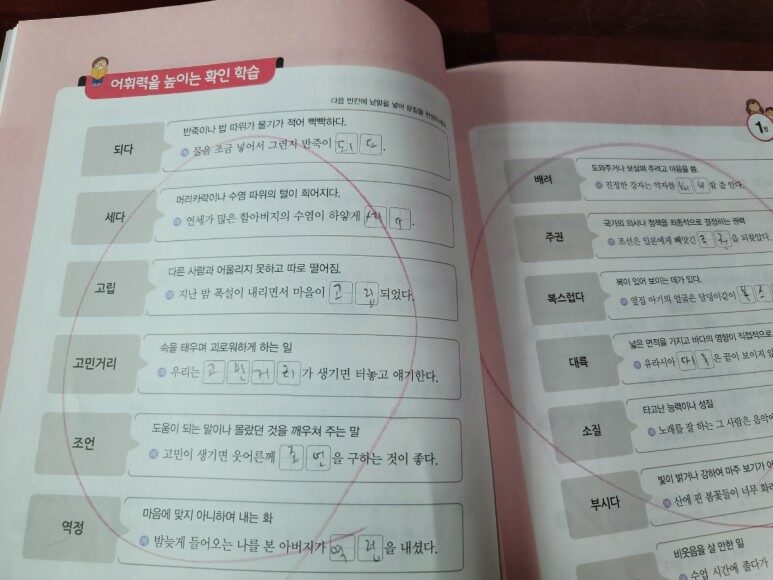 어휘력을 높이는 확인 학습
다음 빈칸에 낱말을 넣어 문장을 완성하세요
되다
반죽이나 밥 따위가 물기가 적어 빡빡하다.
예 물을 조금 넣어서 그런지 반죽이 되 다.
세다
머리카락이나 수염 따위의 털이 희어지다.
예 연세가 많은 할아버지의 수염이 하얗게 세 다.
고립
다른 사람과 어울리지 못하고 따로 떨어짐.
예 지난 밤 폭설이 내리면서 마을이 고 립 되었다.
고민거리
속을 태우며 괴로워하게 하는 일
예 우리는 고 민 거 리 가 생기면 터놓고 얘기한다.
조언
도움이 되는 말이나 몰랐던 것을 깨우쳐 주는 말
예 고민이 생기면 웃어른께 조 언 을 구하는 것이 좋다.
역정
마음에 맞지 아니하여 내는 화
예 밤늦게 들어오는 나를 본 아버지가 역 정 을 내셨다.
1장
배려
도와주거나 보살펴 주려고 마음을 씀.
예 진정한 강자는 약자를 배 려 할 줄 안다.
주권
국가의 의사나 정책을 최종적으로 결정하는 권력
예 조선은 일본에게 빼앗긴 주 권 을 되찾았다.
복스럽다
복이 있어 보이는 데가 있다.
예 옆집 아기의 얼굴은 달덩이같이 복 스
대륙
넓은 면적을 가지고 바다의 영향이 직접적으로
예 유라시아 대 륙 은 끝이 보이지 않
소질
타고난 능력이나 성질
예 노래를 잘 하는 그 사람은 음악에
부시다
빛이 밝거나 강하여 마주 보기가 어
예 산에 핀 봄꽃들이 너무 화려
비웃음을 살 만한 일
예 수업 시간에 졸다가